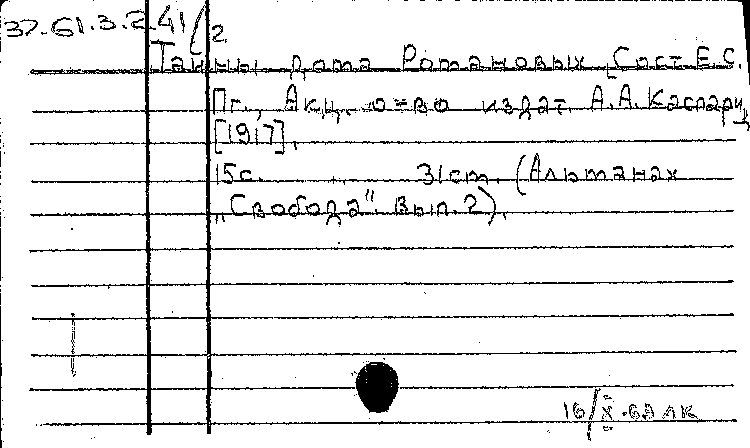 37.61.3.2.41/2
Тайны дома Романовых [Сост. Е.С.
Пг., Акц. о-во издат. А.А. Каспари,
[1917].
15с. 31см. (Альманах
„Свобода". Вып. 2).
16/X-69 ЛК